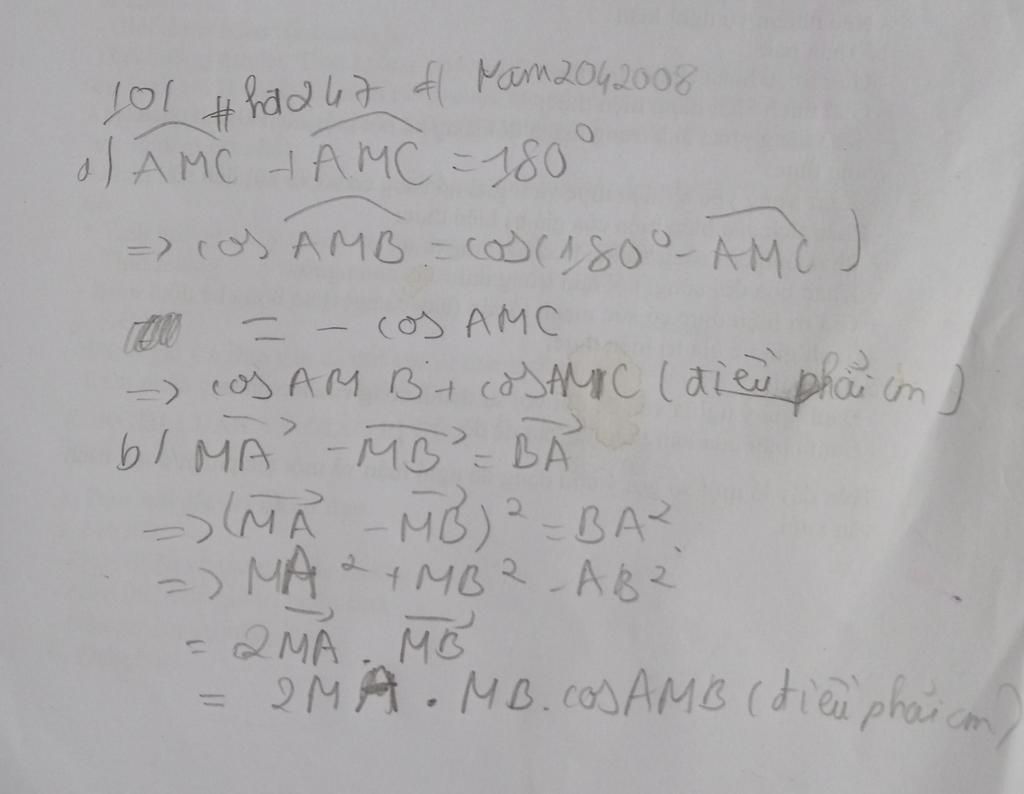 101 #hd247 # Nam2042008
a) AMC + AMC = 180°
=> cos AMB = cos(180° - AMC)
= - cos AMC
=> cos AMB + cosAMC (điều phải cm)
b) MA - MB = BA
=> (MA - MB)² = BA²
=> MA² + MB² - AB²
= 2MA . MB
= 2MA . MB. cosAMB (điều phải cm)